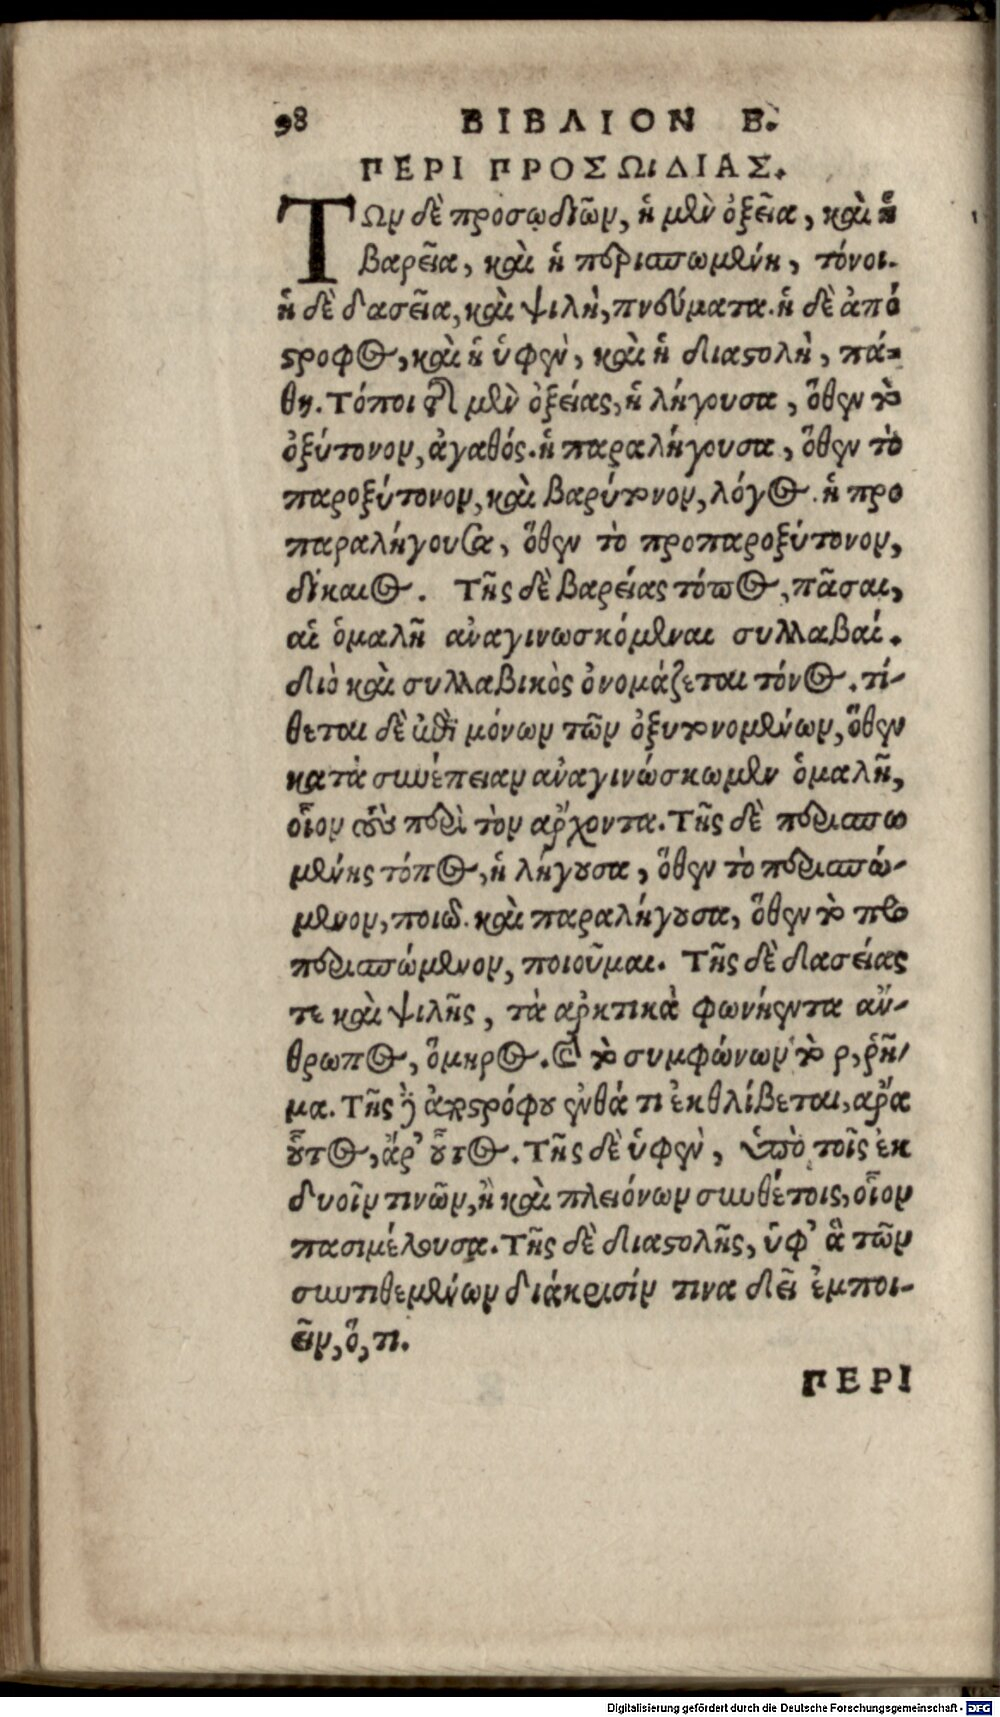 98 ΒΙΒΛΙΟΝ Β.
ΠΕΡΙ ΠΡΟΣΩΙΔΙΑΣ.
ΤΩν δὲ προσῳδιῶν, ἡ μὲν ὀξεῖα, καὶ ἡ
βαρεῖα, καὶ ἡ περισπωμένη, τόνοι.
ἡ δὲ δασεῖα, καὶ ψιλὴ, πνεύματα. ἡ δὲ ἀπό
στροφος, καὶ ἡ ὑφὲν, καὶ ἡ διαστολὴ, πά-
θη. Τόποι τῆς μὲν ὀξείας, ἡ λήγουσα, ὅθεν τὸ
ὀξύτονον, ἀγαθός. ἡ παραλήγουσα, ὅθεν τὸ
παροξύτονον, καὶ βαρύτονον, λόγος. ἡ προ
παραλήγουσα, ὅθεν τὸ προπαροξύτονον,
δίκαιος. Τῆς δὲ βαρείας τόπος, πᾶσαι,
αἱ ὁμαλῆ ἀναγινωσκόμεναι συλλαβαί.
διὸ καὶ συλλαβικὸς ὀνομάζεται τόνος. τί-
θεται δὲ ἐπὶ μόνων τῶν ὀξυτονομένων, ὅθεν
κατὰ συνέπειαν ἀναγινώσκωμεν ὁμαλῆ,
οἷον σὺ περὶ τὸν ἄρχοντα. Τῆς δὲ περισπω
μένης τόπος, ἡ λήγουσα, ὅθεν τὸ περισπώ-
μενον, ποιῶ. καὶ παραλήγουσα, ὅθεν τὸ προ
περισπώμενον, ποιοῦμαι. Τῆς δὲ δασείας
τε καὶ ψιλῆς, τὰ ἀρκτικὰ φωνήεντα ἄν-
θρωπος, ὅμηρος. καὶ τὸ συμφώνων τὸ ρ, ῥῆ-
μα. Τῆς δὲ ἀποστρόφου ἔνθά τι ἐκθλίβεται, ἄρα
οὗτος, ἆρ’ οὗτος. Τῆς δὲ ὑφὲν, ὑπὸ τοῖς ἐκ
δυοῖν τινῶν, ἢ καὶ πλειόνων συνθέτοις, οἷον
πασιμέλουσα. Τῆς δὲ διαστολῆς, ὑφ’ ἃ τῶν
συντιθεμένων διάκρισίν τινα δεῖ ἐμποι-
εῖν, ὅ, τι.
ΠΕΡΙ
Digitalisierung gefördert durch die Deutsche Forschungsgemeinschaft - DFG